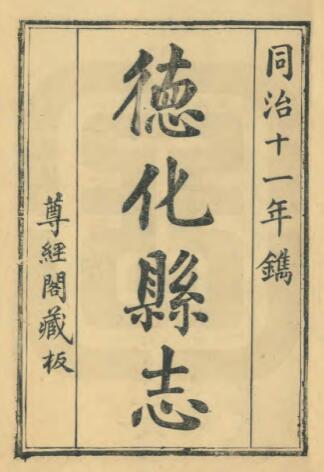 同治十一年鐫
德化縣志
尊經閣藏板